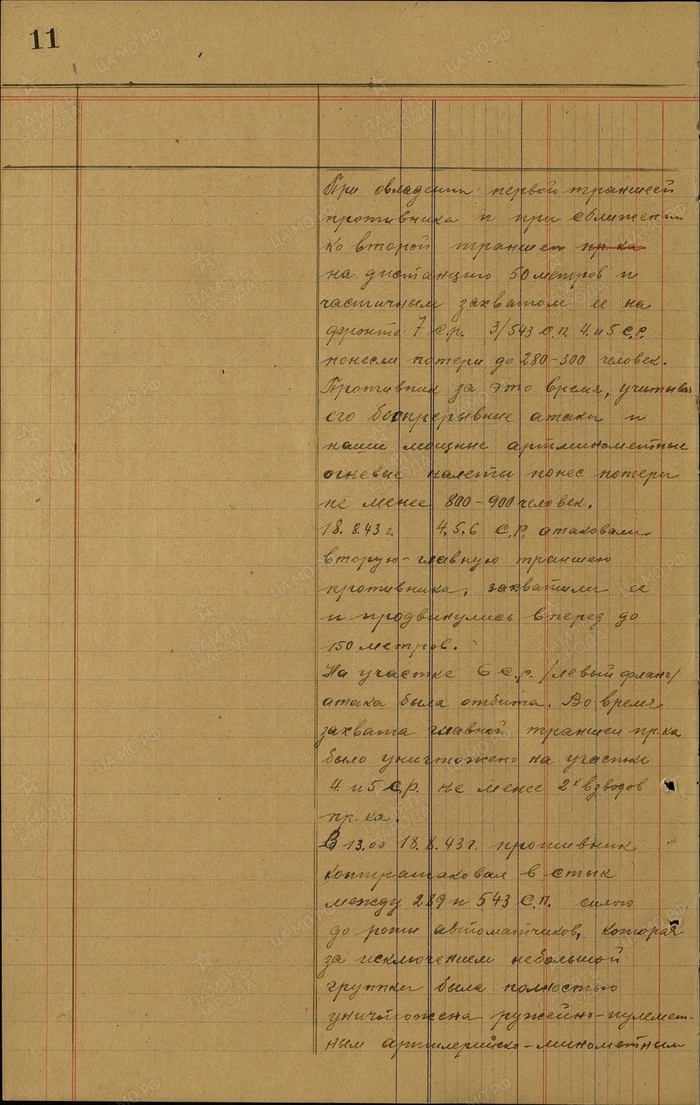 11
При овладении первой траншеей
противника и при сближении
ко второй траншеи пр-ка
на дистанцию 50 метров и
частичным захватом ее на
фронте 7 С.р. 3/543 С.П. 4 и 5 С.Р.
понесли потери до 280-300 человек.
Противник за это время, учитывая
его беспрерывные атаки и
наши мощные артминометные
огневые налеты понес потери
не менее 800-900 человек.
18.8.43 г. 4,5,6 С.Р. атаковали
вторую-главную траншею
противника, захватили ее
и продвинулись вперед до
150 метров.
На участке 6 С.р. /левый фланг/
атака была отбита. Во время
захвата главной траншеи пр-ка
было уничтожено на участке
4 и 5 С.Р. не менее 2х взводов
пр-ка.
В 13.00 18.8.43 г. противник
контратаковал в стык
между 289 и 543 С.П. силою
до роты автоматчиков, которая
за исключением небольшой
группки была полностью
уничтожена ружейно-пулемет-
ным артилерийско-минометным
ПАМЯТЬ НАРОДА
ЦАМО РФ